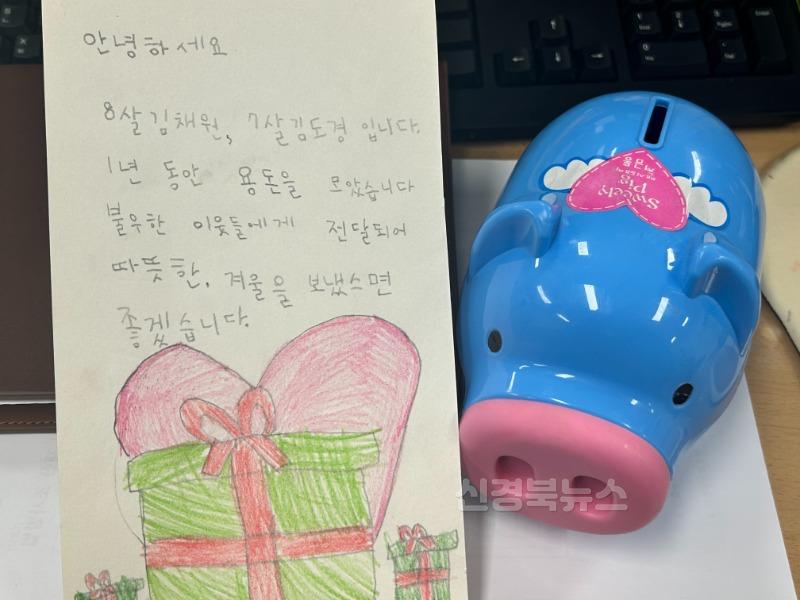 안녕하세요
8살 김채원, 7살 김도경 입니다.
1년 동안 용돈을 모았습니다
불우한 이웃들에게 전달되어
따뜻한, 겨울을 보냈으면
좋겠습니다.
Sweety
Pig
신경북뉴스